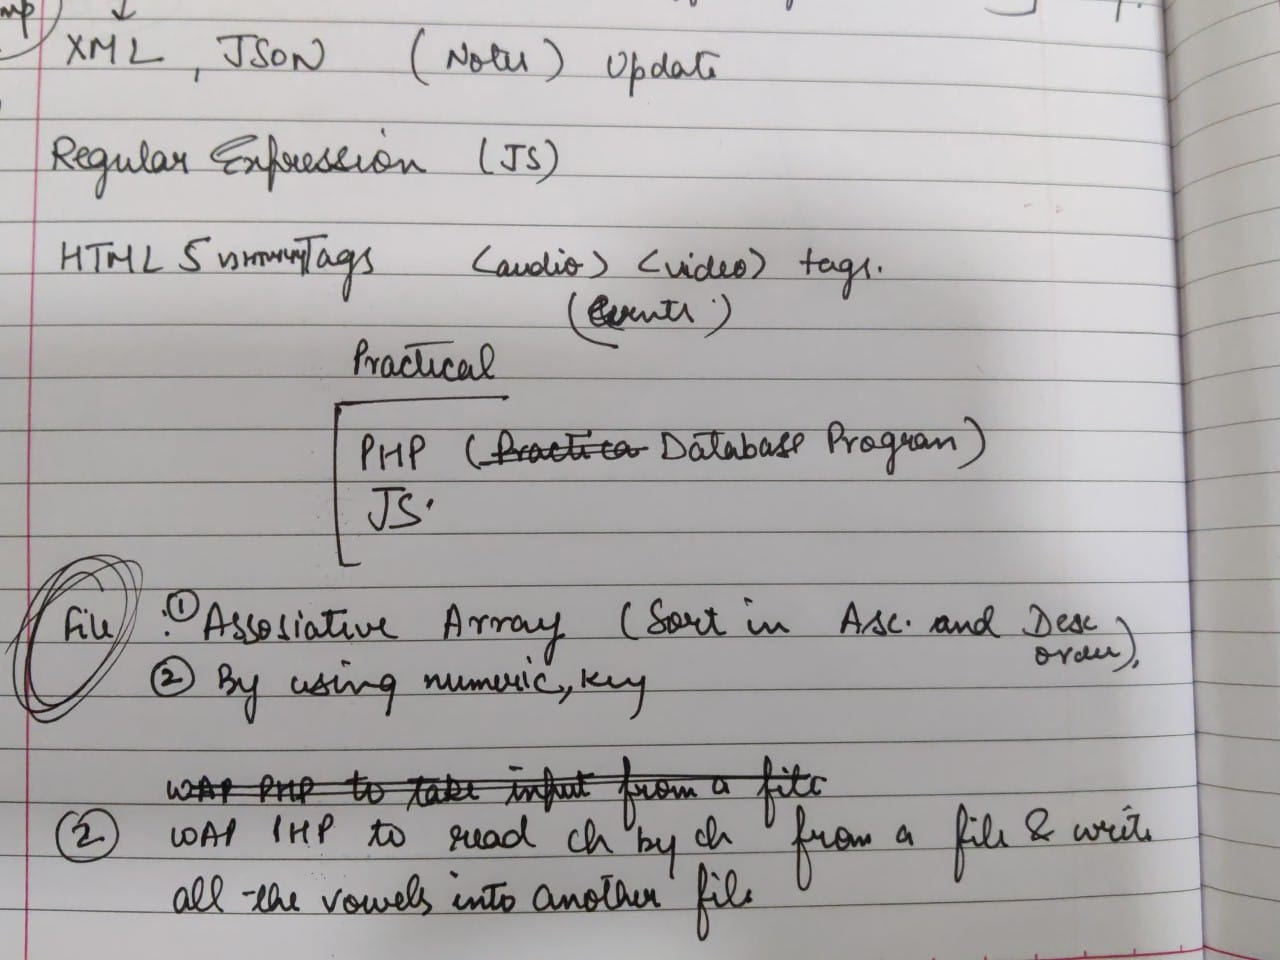 mp
XML, JSON (Notes) Update
Regular Expression (JS)
HTML 5 Tags <audio> <video> tags.
(Events)
Practical
PHP (Practica Database Program)
JS.
File : ① Assosiative Array (Sort in Asc. and Desc
order),
② By using numeric, key
WAP PHP to take input from a file
② WAP PHP to read ch by ch from a file & write
all the vowels into another file